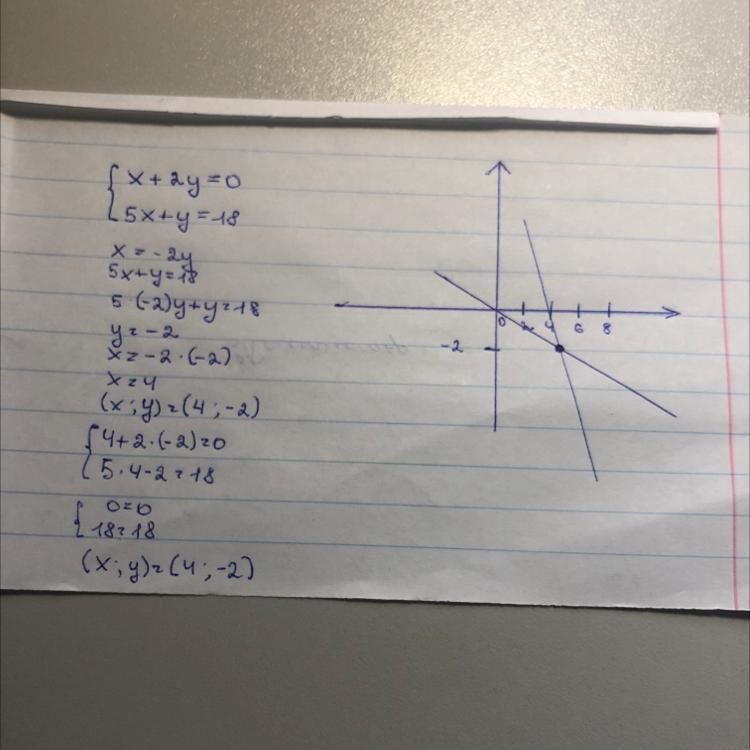 x + 2y = 0
5x + y = 18
x = -2y
5x + y = 18
5·(-2)y + y = 18
y = -2
x = -2·(-2)
x = 4
(x; y) = (4; -2)
4 + 2·(-2) = 0
5·4 - 2 = 18
0 = 0
18 = 18
(x; y) = (4; -2)
0 2 4 6 8
-2